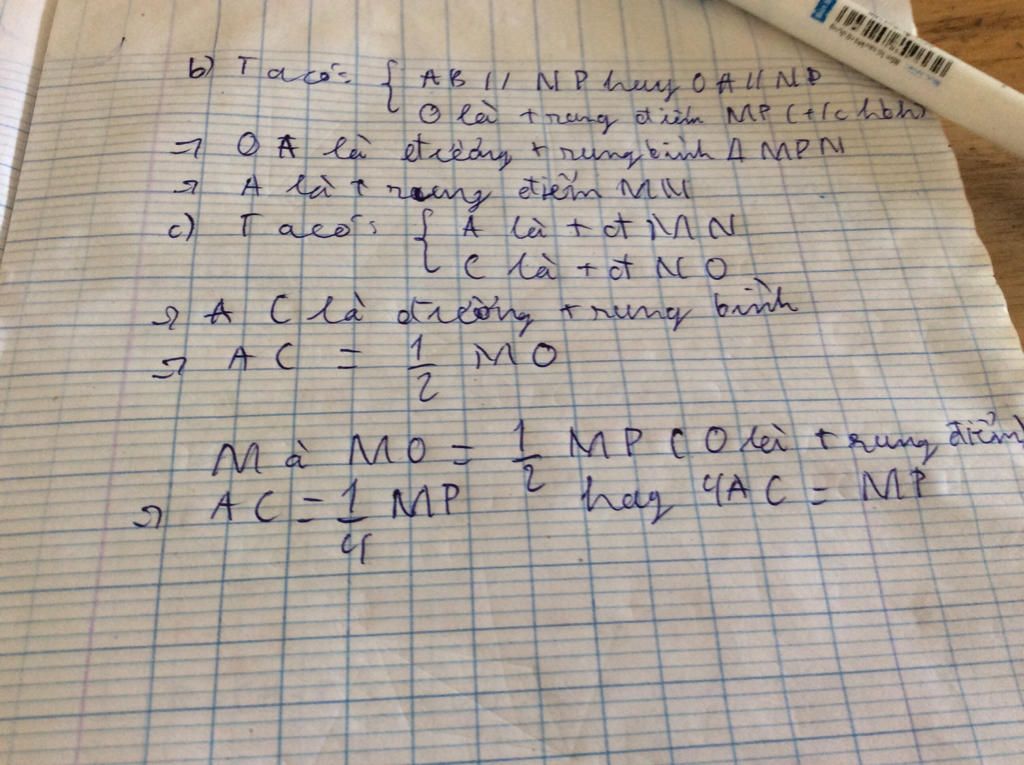 b) Ta có: { AB // NP hay OA // NP
O là trung điểm MP (t/c hbh)
⇒ OA là đường trung bình Δ MPN
⇒ A là trung điểm MN
c) Ta có: { A là tđ MN
C là tđ NO
⇒ AC là đường trung bình
⇒ AC = 1/2 MO
Mà MO = 1/2 MP (O là trung điểm)
⇒ AC = 1/4 MP hay 4AC = MP